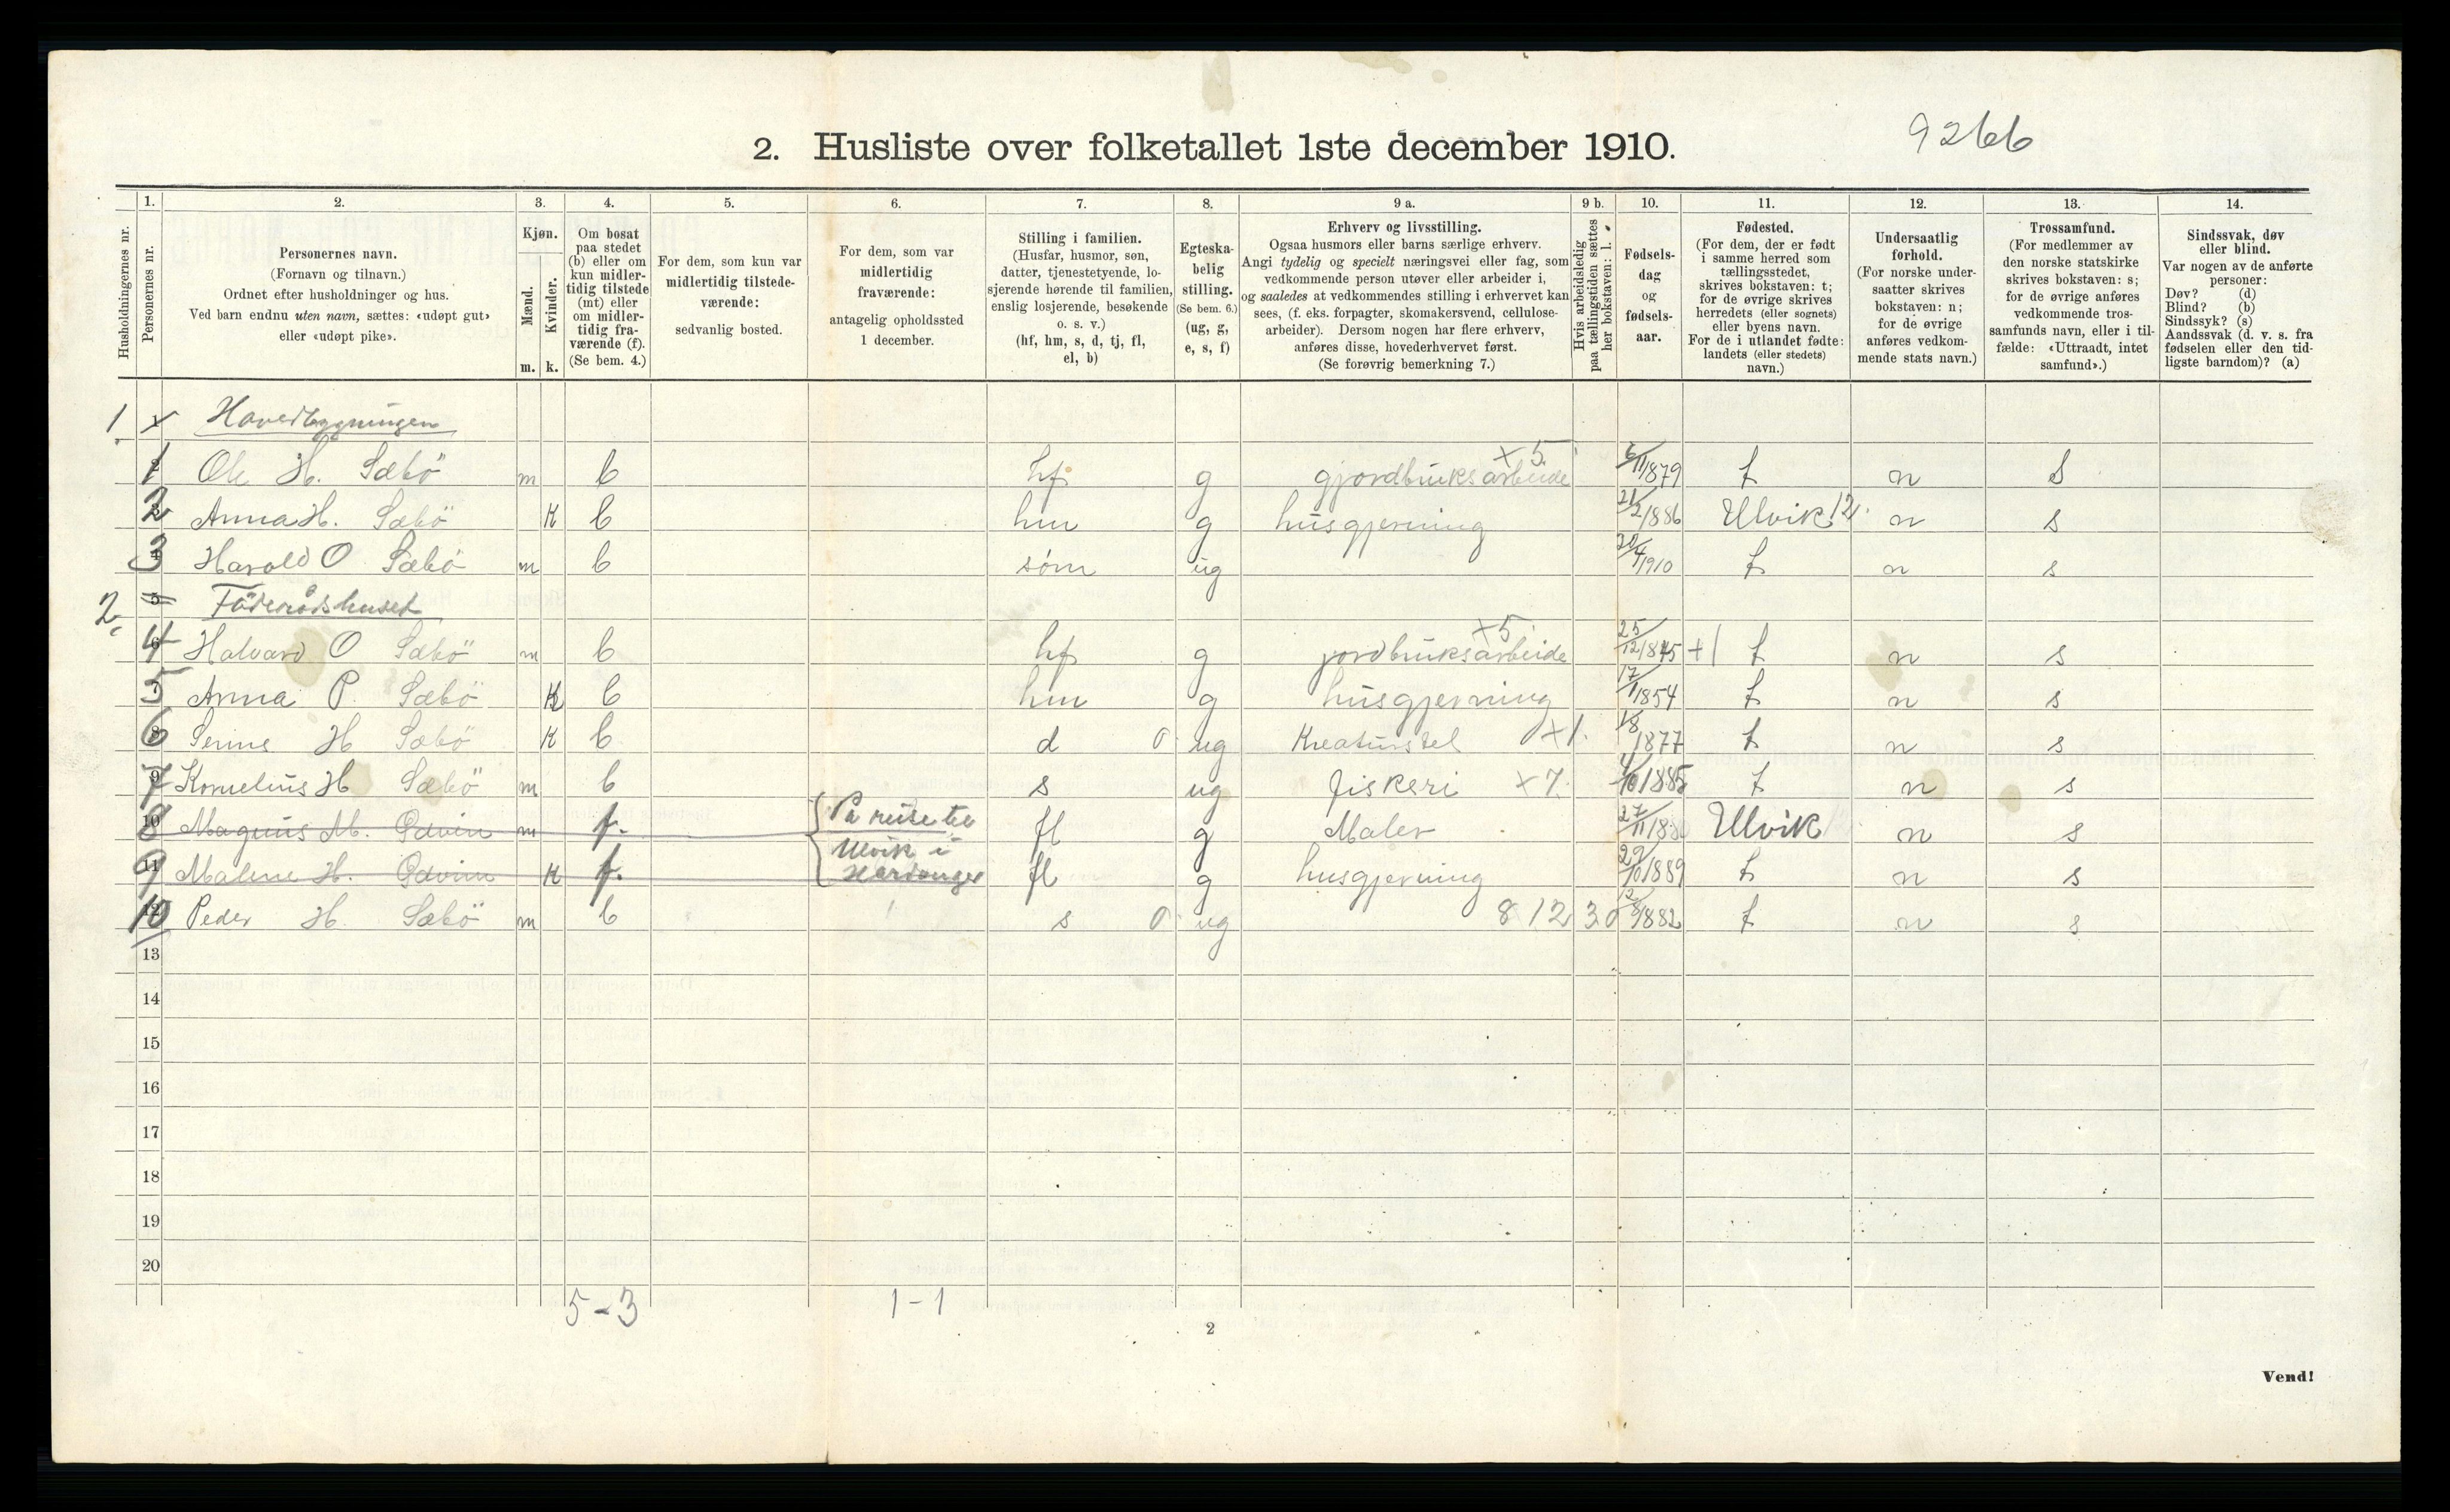 9266
2. Husliste over folketallet 1ste december 1910.
Husholdningernes nr.
1.
Personernes nr.
2.
Personernes navn.
(Fornavn og tilnavn.)
Ordnet efter husholdninger og hus.
Ved barn endnu uten navn, sættes: «udøpt gut»
eller «udøpt pike».
3.
Kjøn.
Mænd.
Kvinder.
m. k.
4.
Om bosat
paa stedet
(b) eller om
kun midler-
tidig tilstede
(mt) eller
om midler-
tidig fra-
værende (f).
(Se bem. 4.)
5.
For dem, som kun var
midlertidig tilstede-
værende:
sedvanlig bosted.
6.
For dem, som var
midlertidig
fraværende:
antagelig opholdssted
1 december.
7.
Stilling i familien.
(Husfar, husmor, søn,
datter, tjenestetyende, lo-
sjerende hørende til familien,
enslig losjerende, besøkende
o. s. v.)
(hf, hm, s, d, tj, fl,
el, b)
8.
Egteska-
belig
stilling.
(Se bem. 6.)
(ug, g,
e, s, f)
9 a.
Erhverv og livsstilling.
Ogsaa husmors eller barns særlige erhverv.
Angi tydelig og specielt næringsvei eller fag, som
vedkommende person utøver eller arbeider i,
og saaledes at vedkommendes stilling i erhvervet kan
sees, (f. eks. forpagter, skomakersvend, cellulose-
arbeider). Dersom nogen har flere erhverv,
anføres disse, hovederhvervet først.
(Se forøvrig bemerkning 7.)
9 b.
Hvis arbeidsledig
paa tællingstiden sættes
her bokstaven: l.
10.
Fødsels-
dag
og
fødsels-
aar.
11.
Fødested.
(For dem, der er født
i samme herred som
tællingsstedet,
skrives bokstaven: t;
for de øvrige skrives
herredets (eller sognets)
eller byens navn.
For de i utlandet fødte:
landets (eller stedets)
navn.)
12.
Undersaatlig
forhold.
(For norske under-
saatter skrives
bokstaven: n;
for de øvrige
anføres vedkom-
mende stats navn.)
13.
Trossamfund.
(For medlemmer av
den norske statskirke
skrives bokstaven: s;
for de øvrige anføres
vedkommende tros-
samfunds navn, eller i til-
fælde: «Uttraadt, intet
samfund».)
14.
Sindssvak, døv
eller blind.
Var nogen av de anførte
personer:
Døv? (d)
Blind? (b)
Sindssyk? (s)
Aandssvak (d. v. s. fra
fødselen eller den tid-
ligste barndom)? (a)
1 Hovedbygningen
1 Ole H. Sæbö m b hf g gjordbruksarbeide x5 6/11 1879 t n s
2 Anna H. Sæbö K b hm g husgjerning 21/2 1886 Ulvik 12 n s
3 Harold O Sæbö m b sóm ug 20/4 1910 t n s
2 Föderådshuset
4 Halvard O Sæbö m b hf g jordbruksarbeide x5 25/12 1845 +1 t n s
5 Anna P. Sæbö K b hm g husgjerning 17/1 1854 t n s
6 H Sæbö K b d 0 ug Kreaturstel x1. 1877 t n s
7 Kornelius H Sæbö m b s ug fiskeri x7. 4/10 1885 t n s
8 Magnus M. Odvin m f. På reise til fl g Maler 27/11 188 Ulvik n s
Ulvik i
9 Malene H. Odvin K f. Hardanger fl g husgjerning 29/10 1889 t n s
10 Peder H. Sæbö m b s 0 ug 812 30 12/8 1882 t n s
13
14
15
16
17
18
19
20
5-3 1-1
2
Vend!